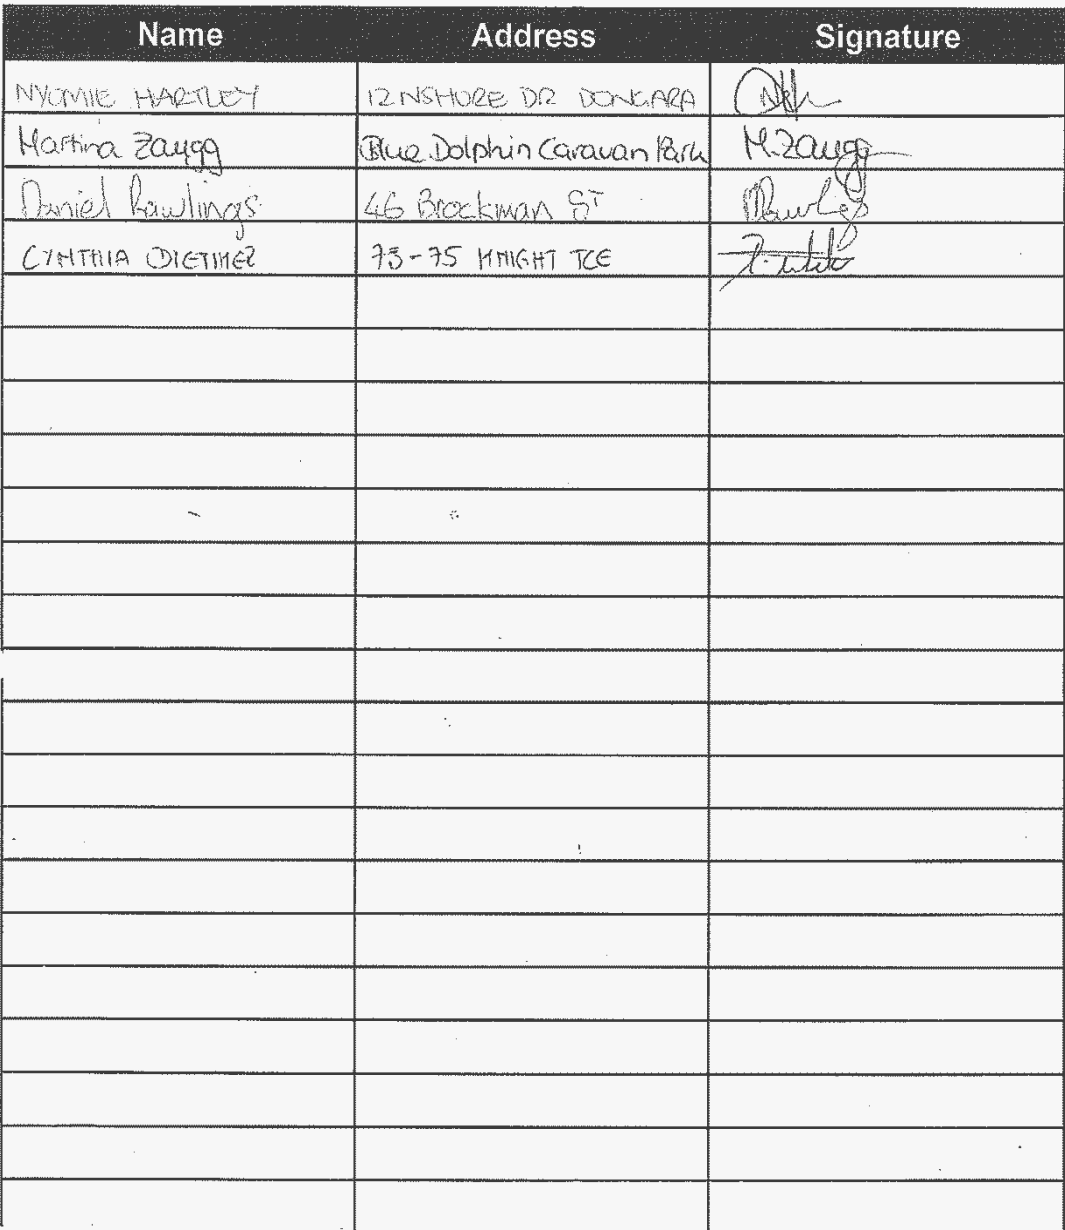 Name Address Signature
NYOMIE HARTLEY 12 NSHORE DR DONGARA
Martina Zaugg Blue Dolphin Caravan Park M.Zaugg
Daniel Rawlings 46 Brockman ST
CYNTHIA 73-75 KNIGHT TCE